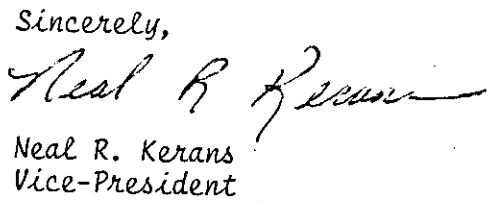 Sincerely,
Neal R Kerans
Neal R. Kerans
Vice-President